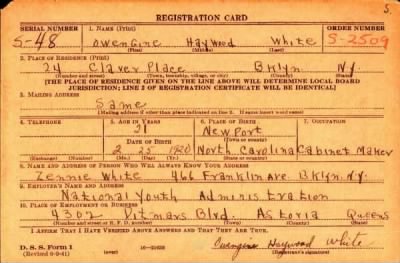 S.
REGISTRATION CARD
SERIAL NUMBER 1. NAME (Print) ORDER NUMBER
S-48 Owengine Haywood White S-2509
(First) (Middle) (Last)
2. PLACE OF RESIDENCE (Print)
24 Claver Place Bklyn N.Y.
(Number and street) (Town, township, village, or city) (County) (State)
[THE PLACE OF RESIDENCE GIVEN ON THE LINE ABOVE WILL DETERMINE LOCAL BOARD
JURISDICTION; LINE 2 OF REGISTRATION CERTIFICATE WILL BE IDENTICAL]
3. MAILING ADDRESS
Same
[Mailing address if other than place indicated on line 2. If same insert word same]
4. TELEPHONE 5. AGE IN YEARS 6. PLACE OF BIRTH 7. OCCUPATION
21 New Port
DATE OF BIRTH (Town or county)
2 25 1920 North Carolina Cabinet Maker
(Exchange) (Number) (Mo.) (Day) (Yr.) (State or country)
8. NAME AND ADDRESS OF PERSON WHO WILL ALWAYS KNOW YOUR ADDRESS
Zennie White 466 Franklin Ave. Bklyn. N.Y.
9. EMPLOYER'S NAME AND ADDRESS
National Youth Administration
10. PLACE OF EMPLOYMENT OR BUSINESS
4302 Ditmars Blvd. Astoria Queens
(Number and street or R. F. D. number) (Town) (County) (State)
I AFFIRM THAT I HAVE VERIFIED ABOVE ANSWERS AND THAT THEY ARE TRUE.
D. S. S. Form 1 Owengine Haywood White
(Revised 6-9-41) (over) 16-21632 (Registrant's signature)